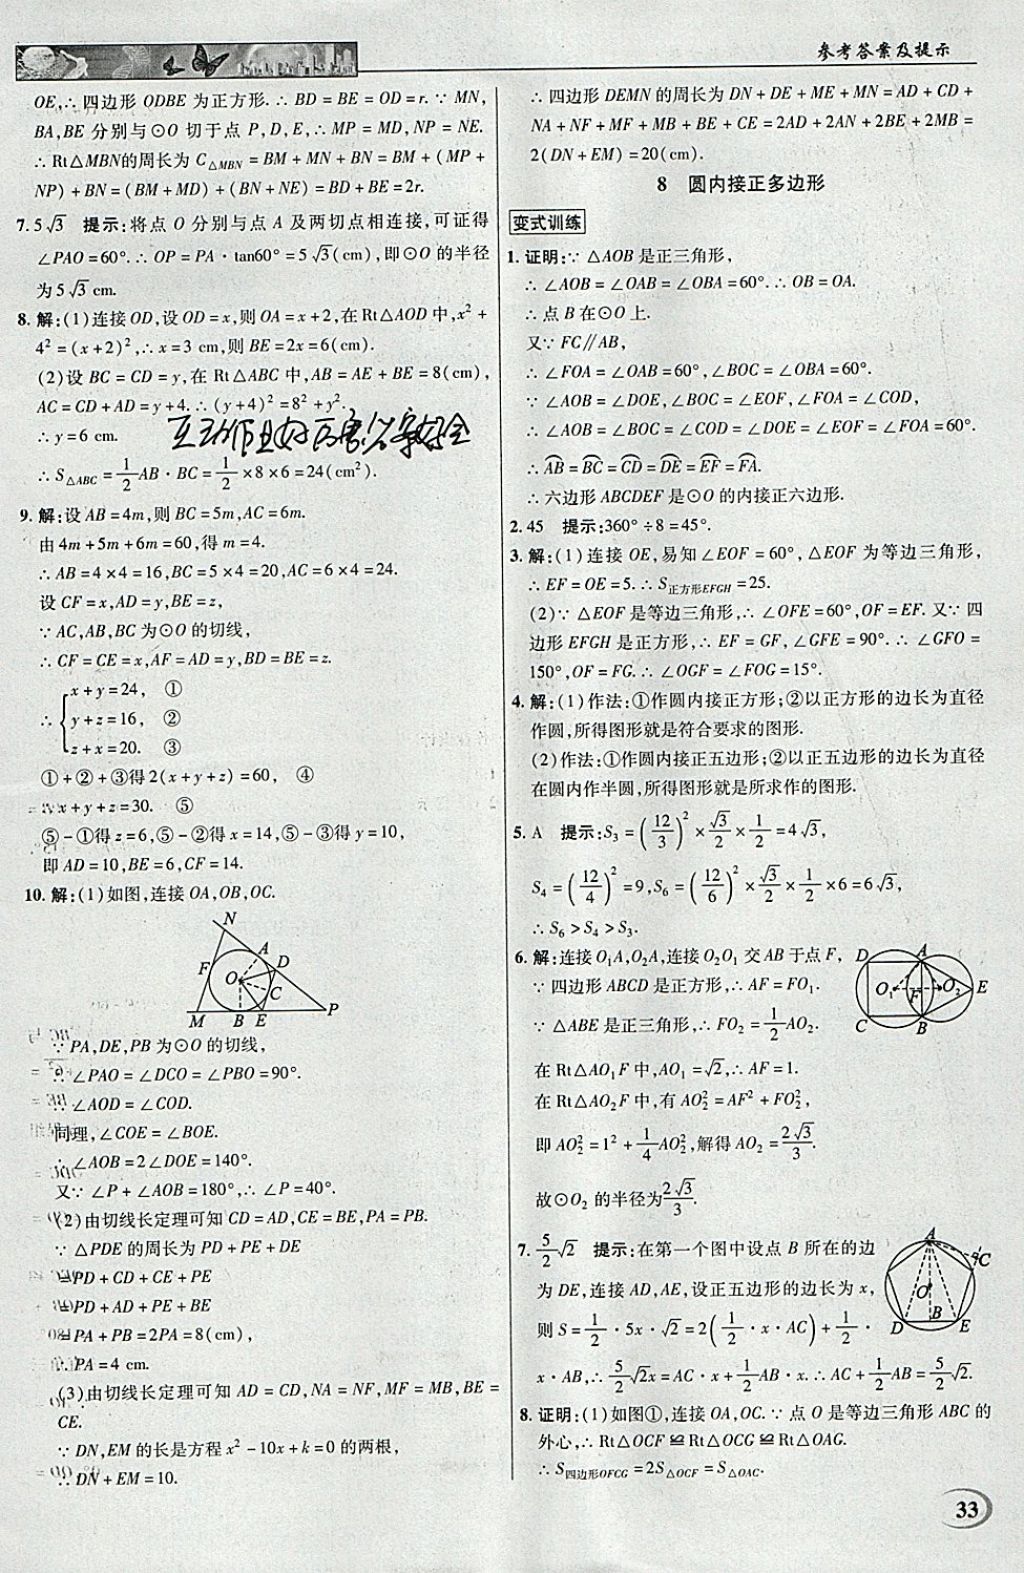 参考答案及提示
OE,∴四边形 ODBE 为正方形.∴BD=BE=OD=r.∵MN,
BA,BE 分别与⊙O 切于点 P,D,E,∴MP=MD,NP=NE.
∴Rt△MBN的周长为 C△MBN=BM+MN+BN=BM+(MP+
NP)+BN=(BM+MD)+(BN+NE)=BD+BE=2r.
7.5√3 提示:将点 O 分别与点 A 及两切点相连接,可证得
∠PAO=60°.∴OP=PA·tan60°=5√3(cm),即⊙O 的半径
为5√3 cm.
8.解:(1)连接OD,设OD=x,则OA=x+2,在Rt△AOD中,x²+
4²=(x+2)²,∴x=3 cm,则BE=2x=6(cm).
(2)设 BC=CD=y,在 Rt△ABC 中,AB=AE+BE=8(cm),
AC=CD+AD=y+4.∴(y+4)²=8²+y².
∴y=6 cm.
∴S△ABC=1/2AB·BC=1/2×8×6=24(cm²).
9.解:设AB=4m,则BC=5m,AC=6m.
由4m+5m+6m=60,得m=4.
∴AB=4×4=16,BC=5×4=20,AC=6×4=24.
设 CF=x,AD=y,BE=z,
∵AC,AB,BC为⊙O的切线,
∴CF=CE=x,AF=AD=y,BD=BE=z.
∴{x+y=24, ①
y+z=16, ②
z+x=20. ③
①+②+③得2(x+y+z)=60, ④
x+y+z=30. ⑤
⑤-①得z=6,⑤-②得x=14,⑤-③得y=10,
即AD=10,BE=6,CF=14.
10.解:(1)如图,连接OA,OB,OC.
N
A
D
F
O
C
M B E P
∵PA,DE,PB为⊙O的切线,
∴∠PAO=∠DCO=∠PBO=90°.
∴∠AOD=∠COD.
同理,∠COE=∠BOE.
∴∠AOB=2∠DOE=140°.
又∵∠P+∠AOB=180°,∴∠P=40°.
(2)由切线长定理可知CD=AD,CE=BE,PA=PB.
∵△PDE的周长为PD+PE+DE
=PD+CD+CE+PE
=PD+AD+PE+BE
=PA+PB=2PA=8(cm),
∴PA=4 cm.
(3)由切线长定理可知 AD=CD,NA=NF,MF=MB,BE=
CE.
∵DN,EM的长是方程x²-10x+k=0的两根,
∴DN+EM=10.
∴四边形DEMN的周长为DN+DE+ME+MN=AD+CD+
NA+NF+MF+MB+BE+CE=2AD+2AN+2BE+2MB=
2(DN+EM)=20(cm).
8 圆内接正多边形
变式训练
1.证明:∵△AOB是正三角形,
∴∠AOB=∠OAB=∠OBA=60°.∴OB=OA.
∴点B在⊙O上.
又∵FC∥AB,
∴∠FOA=∠OAB=60°,∠BOC=∠OBA=60°.
∵∠AOB=∠DOE,∠BOC=∠EOF,∠FOA=∠COD,
∴∠AOB=∠BOC=∠COD=∠DOE=∠EOF=∠FOA=60°.
∴AB⌒=BC⌒=CD⌒=DE⌒=EF⌒=FA⌒.
∴六边形ABCDEF是⊙O的内接正六边形.
2.45 提示:360°÷8=45°.
3.解:(1)连接OE,易知∠EOF=60°,△EOF为等边三角形,
∴EF=OE=5.∴S正方形EFGH=25.
(2)∵△EOF是等边三角形,∴∠OFE=60°,OF=EF.又∵四
边形 EFGH 是正方形,∴EF=GF,∠GFE=90°.∴∠GFO=
150°,OF=FG.∴∠OGF=∠FOG=15°.
4.解:(1)作法:①作圆内接正方形;②以正方形的边长为直径
作圆,所得图形就是符合要求的图形.
(2)作法:①作圆内接正五边形;②以正五边形的边长为直径
在圆内作半圆,所得图形就是所求作的图形.
5.A 提示:S₃=(12/3)²×√3/2×1/2=4√3,
S₄=(12/4)²=9,S₆=(12/6)²×√3/2×1/2×6=6√3,
∴S₆>S₄>S₃.
6.解:连接O₁A,O₂A,连接O₂O₁交AB于点F,
∵四边形ABCD是正方形,∴AF=FO₁.
∵△ABE是正三角形,∴FO₂=1/2AO₂.
在Rt△AO₁F中,AO₁=√2,∴AF=1.
在Rt△AO₂F中,有AO₂²=AF²+FO₂²,
即AO₂²=1²+1/4AO₂²,解得AO₂=2√3/3.
故⊙O₂的半径为2√3/3.
D A
O₁ F O₂ E
C B
7.5/2√2 提示:在第一个图中设点 B 所在的边
为DE,连接AD,AE,设正五边形的边长为x,
则S=1/2·5x·√2=2(1/2·x·AC)+1/2·
x·AB,∴5/2√2x=AC·x+1/2AB·x.∴AC+1/2AB=5/2√2.
A
C
O
B
D E
8.证明:(1)如图①,连接OA,OC.∵点O是等边三角形ABC的
外心,∴Rt△OCF≌Rt△OCG≌Rt△OAG.
∴S四边形OFCG=2S△OCF=S△OAC.
33